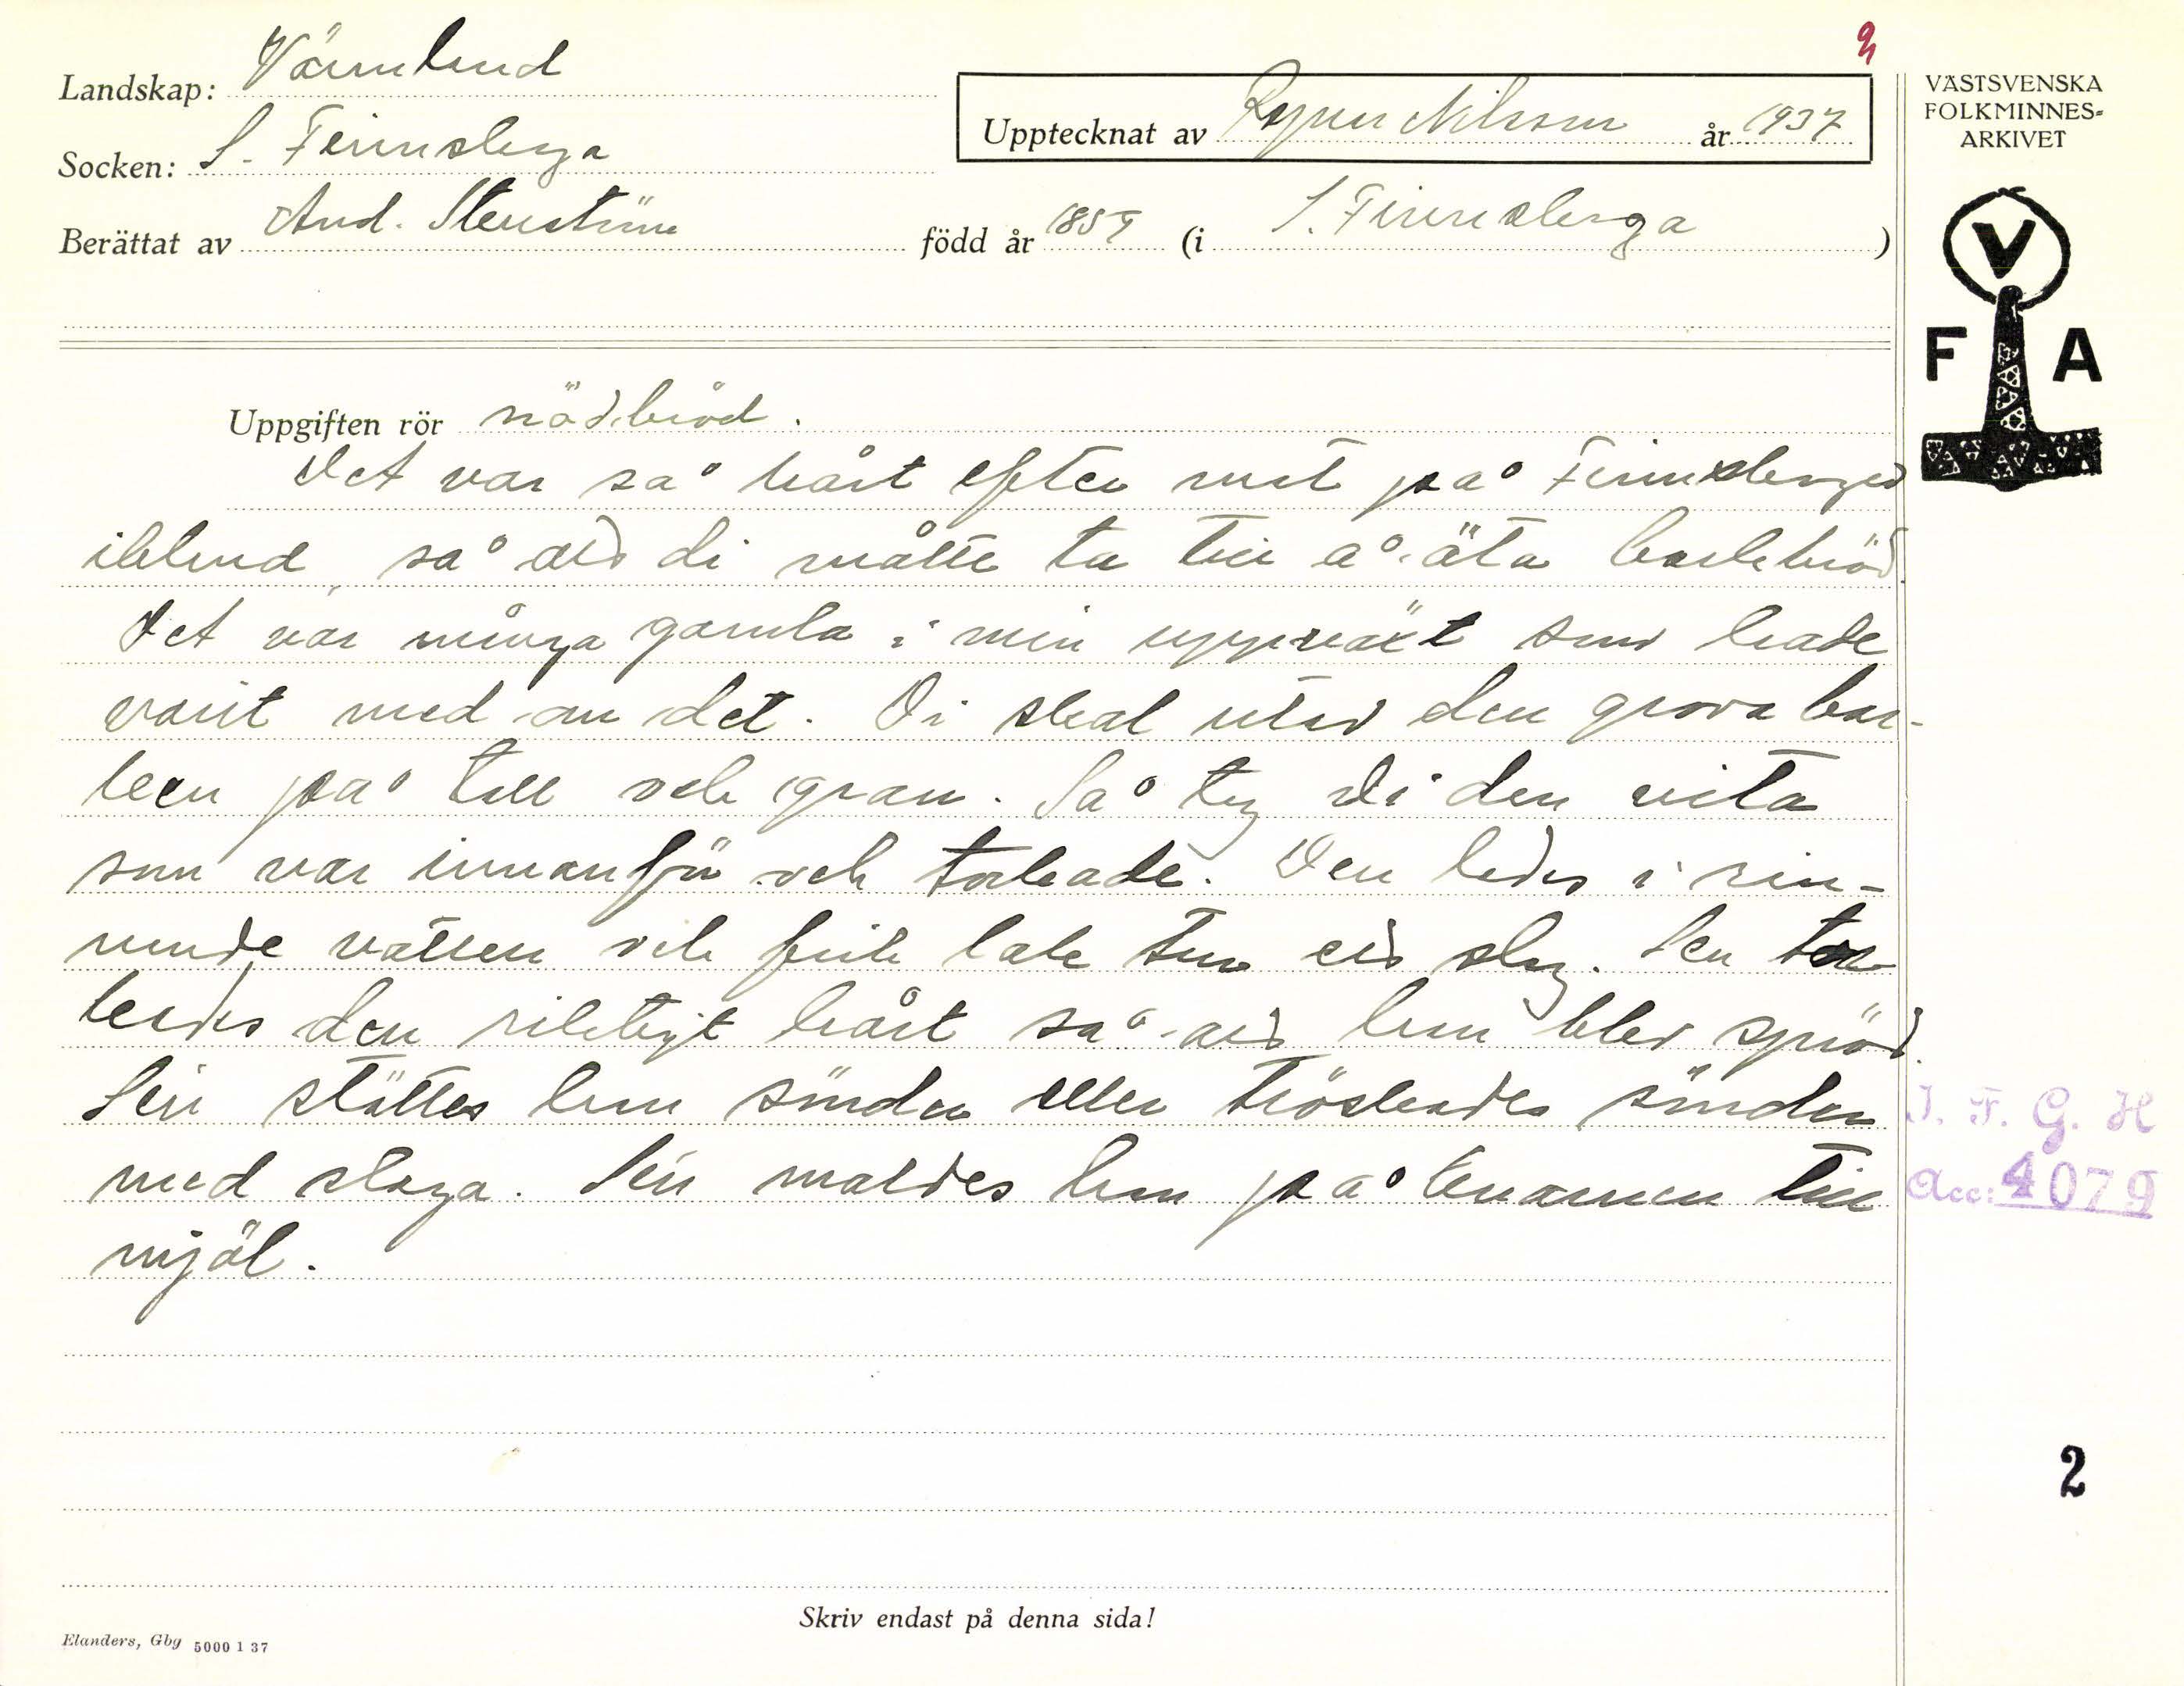 Landskap: Värmland
Socken: S. Finnskoga
Berättat av And. Stenström född år 1859 (i S. Finnskoga)
Upptecknat av Ragnar Nilsson år 1937
VÄSTSVENSKA
FOLKMINNES-
ARKIVET
V
F A
Uppgiften rör nödbröd.
Det var så hårt efter mat på Finnskogen
ibland, så att di måtte ta till å äta barkbröd.
Det var många gamla i min uppväxt som hade
varit med om det. Di skal utav den grova bar-
ken på tall och gran. Så tog di den vita
som var innanför och torkade. Den lades i rin-
nande vatten och fick lake tur eis slag. Sen tor-
kades den riktigt hårt så att han blev spröd.
Sen stöttes han sönder eller tröskades sönder
med slaga. Sen maldes han på kvarnen till
mjöl.
I. F. G. H
Acc: 4079
2
Skriv endast på denna sida!
Elanders, Gbg 5000 1 37